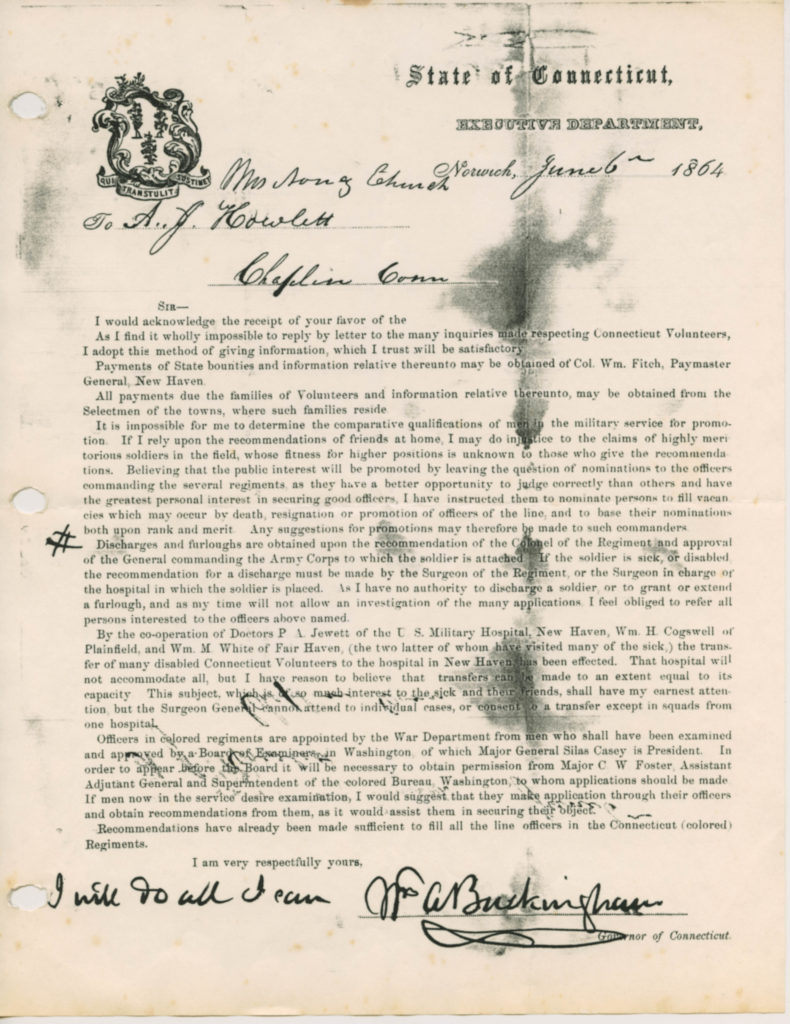 State of Connecticut,
EXECUTIVE DEPARTMENT,
QUI TRANSTULIT SUSTINET
Norwich, June 6th 1864
Church
To A. J. Howlett
Chaplin Conn
SIR—
I would acknowledge the receipt of your favor of the
As I find it wholly impossible to reply by letter to the many inquiries made respecting Connecticut Volunteers,
I adopt this method of giving information, which I trust will be satisfactory
Payments of State bounties and information relative thereunto may be obtained of Col. Wm. Fitch, Paymaster
General, New Haven.
All payments due the families of Volunteers and information relative thereunto, may be obtained from the
Selectmen of the towns, where such families reside
It is impossible for me to determine the comparative qualifications of men in the military service for promo-
tion. If I rely upon the recommendations of friends at home, I may do injustice to the claims of highly meri
torious soldiers in the field, whose fitness for higher positions is unknown to those who give the recommenda
tions. Believing that the public interest will be promoted by leaving the question of nominations to the officers
commanding the several regiments, as they have a better opportunity to judge correctly than others and have
the greatest personal interest in securing good officers, I have instructed them to nominate persons to fill vacan
cies which may occur by death, resignation or promotion of officers of the line, and to base their nominations
both upon rank and merit. Any suggestions for promotions may therefore be made to such commanders
# Discharges and furloughs are obtained upon the recommendation of the Colonel of the Regiment and approval
of the General commanding the Army Corps to which the soldier is attached If the soldier is sick, or disabled,
the recommendation for a discharge must be made by the Surgeon of the Regiment, or the Surgeon in charge of
the hospital in which the soldier is placed. As I have no authority to discharge a soldier, or to grant or extend
a furlough, and as my time will not allow an investigation of the many applications, I feel obliged to refer all
persons interested to the officers above named.
By the co-operation of Doctors P. A. Jewett of the U. S. Military Hospital, New Haven, Wm. H. Cogswell of
Plainfield, and Wm. M. White of Fair Haven, (the two latter of whom have visited many of the sick,) the trans-
fer of many disabled Connecticut Volunteers to the hospital in New Haven has been effected. That hospital will
not accommodate all, but I have reason to believe that transfers can be made to an extent equal to its
capacity This subject, which is of so much interest to the sick and their friends, shall have my earnest atten-
tion, but the Surgeon General cannot attend to individual cases, or consent to a transfer except in squads from
one hospital.
Officers in colored regiments are appointed by the War Department from men who shall have been examined
and approved by a Board of Examiners, in Washington, of which Major General Silas Casey is President. In
order to appear before the Board it will be necessary to obtain permission from Major C. W. Foster, Assistant
Adjutant General and Superintendent of the colored Bureau, Washington, to whom applications should be made
If men now in the service desire examination, I would suggest that they make application through their officers
and obtain recommendations from them, as it would assist them in securing their object.
Recommendations have already been made sufficient to fill all the line officers in the Connecticut (colored)
Regiments.
I am very respectfully yours,
I will do all I can Wm A Buckingham
Governor of Connecticut.